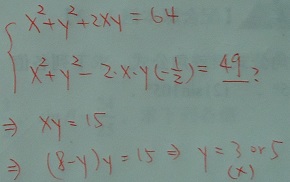 x²+y²+2xy=64
x²+y²-2·x·y(-1/2)=49?
⇒ xy=15
⇒ (8-y)y=15 ⇒ y=3 or 5
(x)